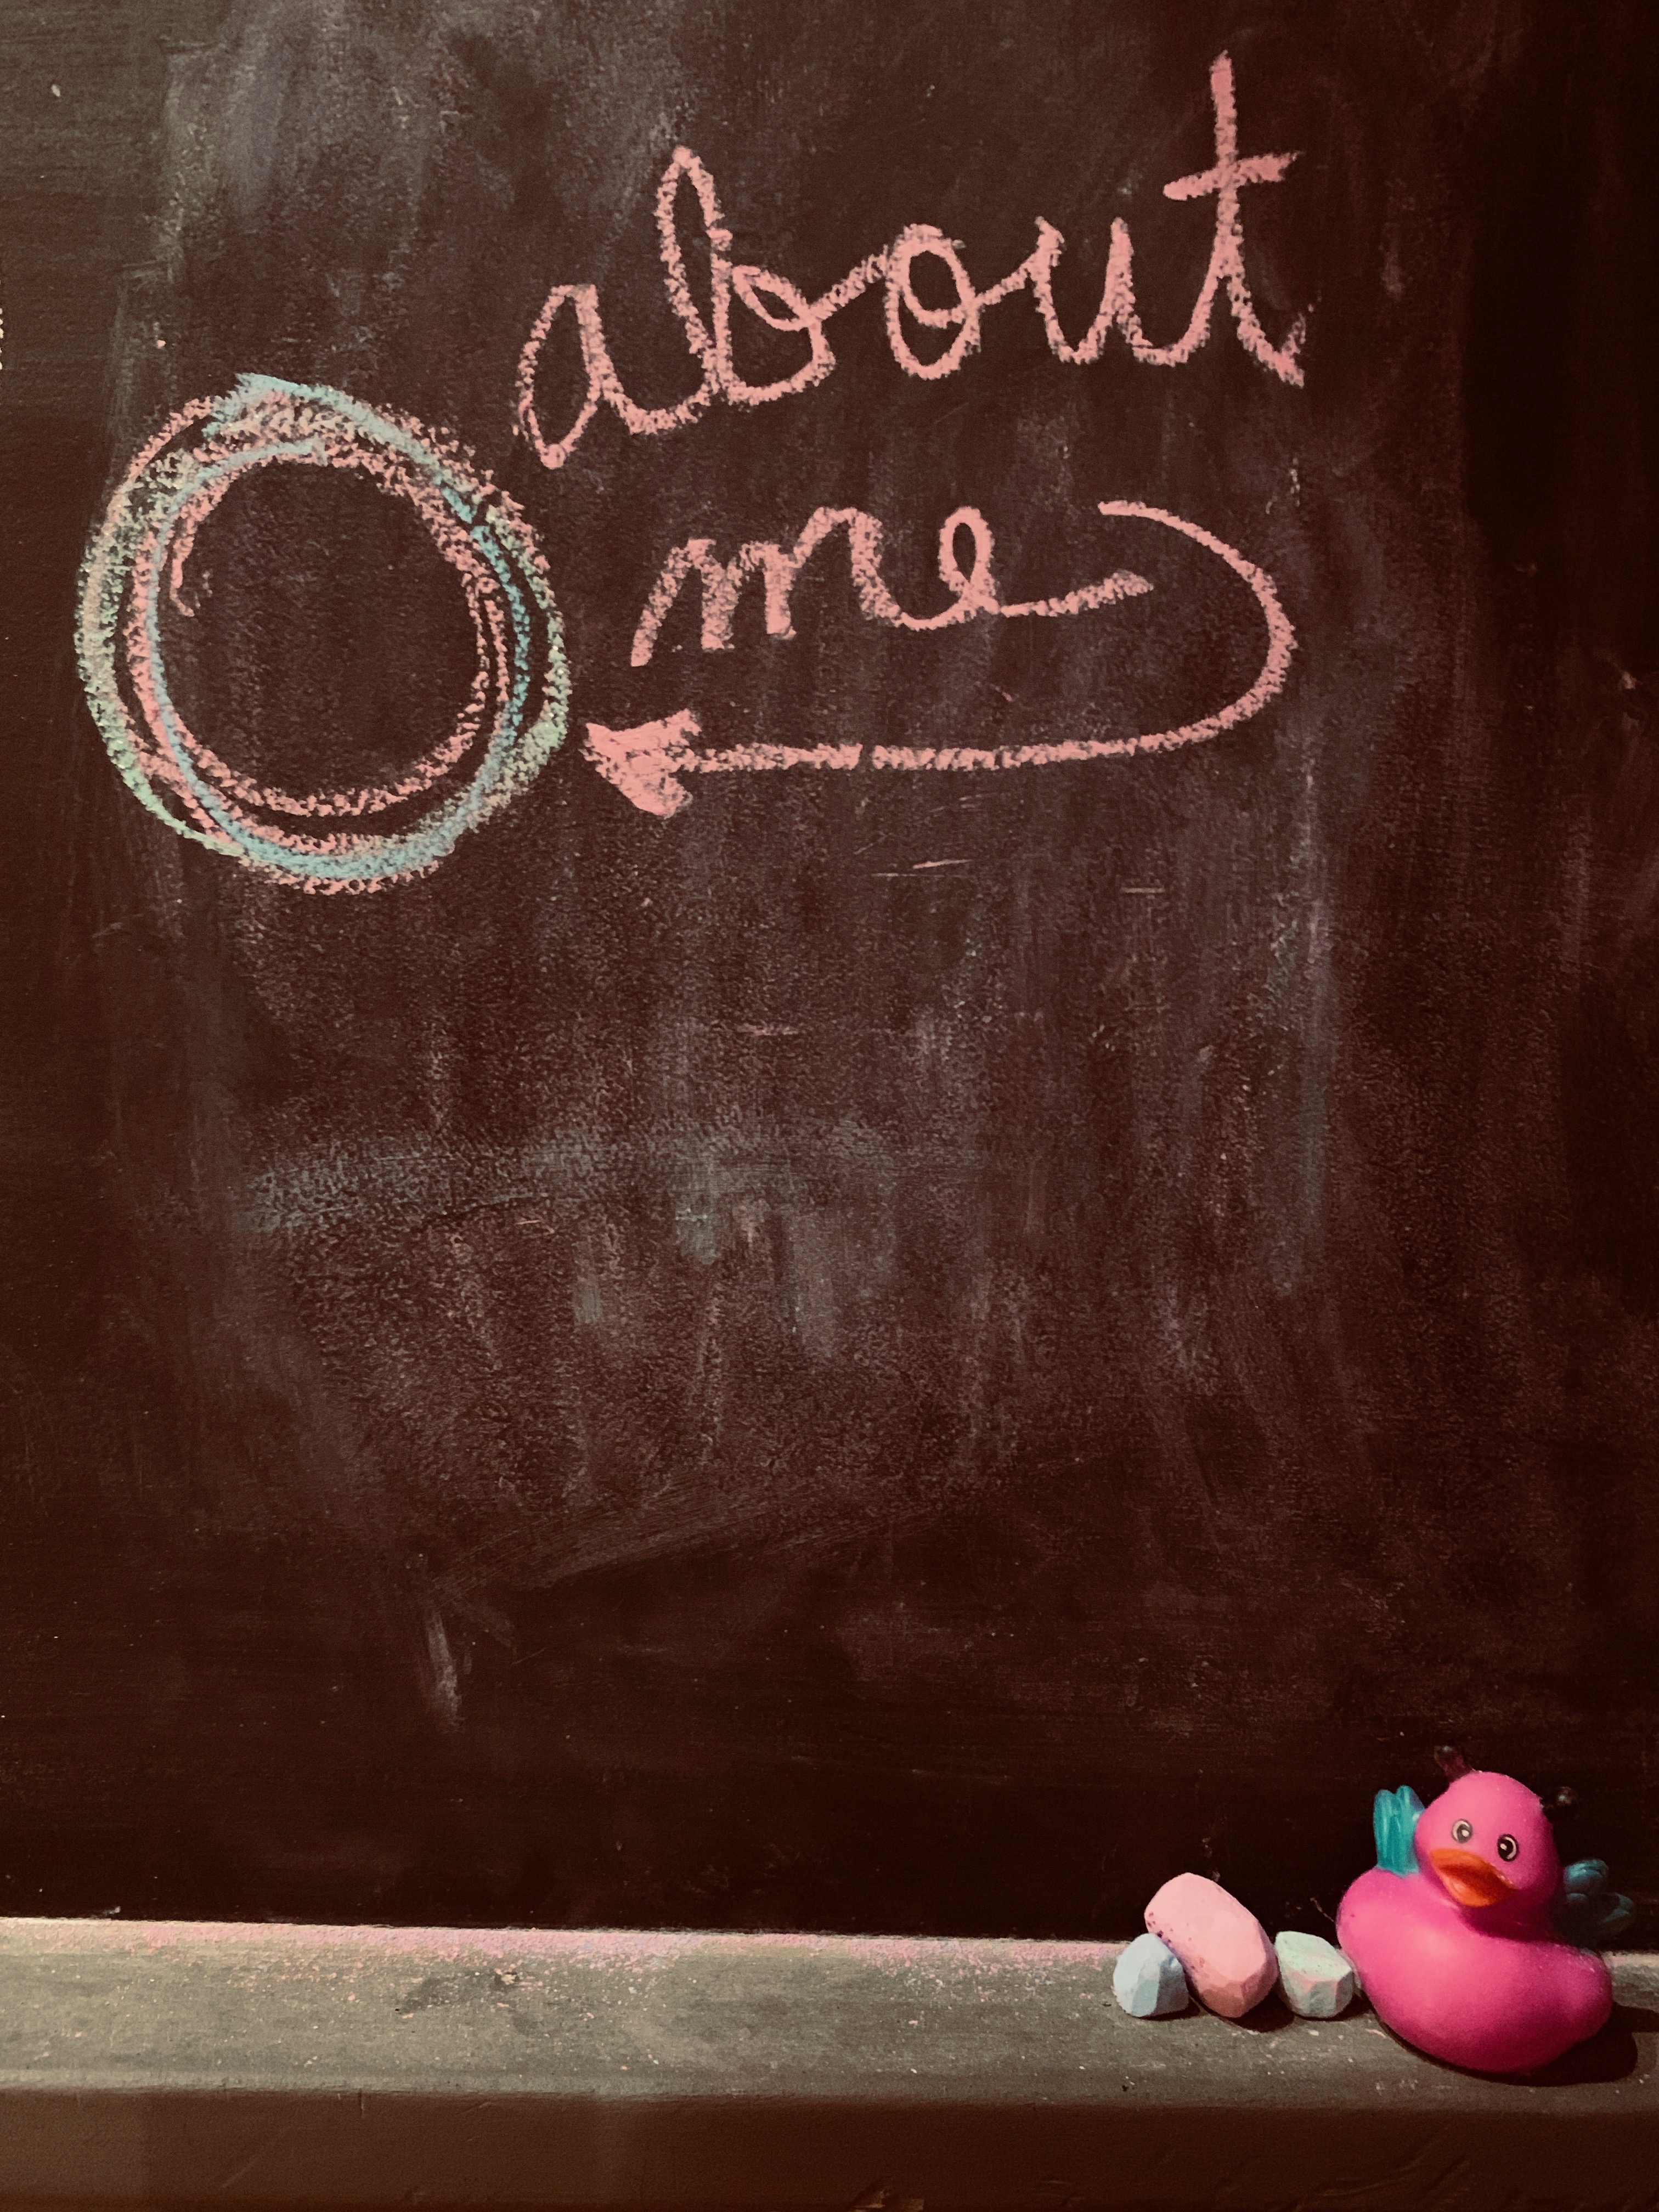 about
me